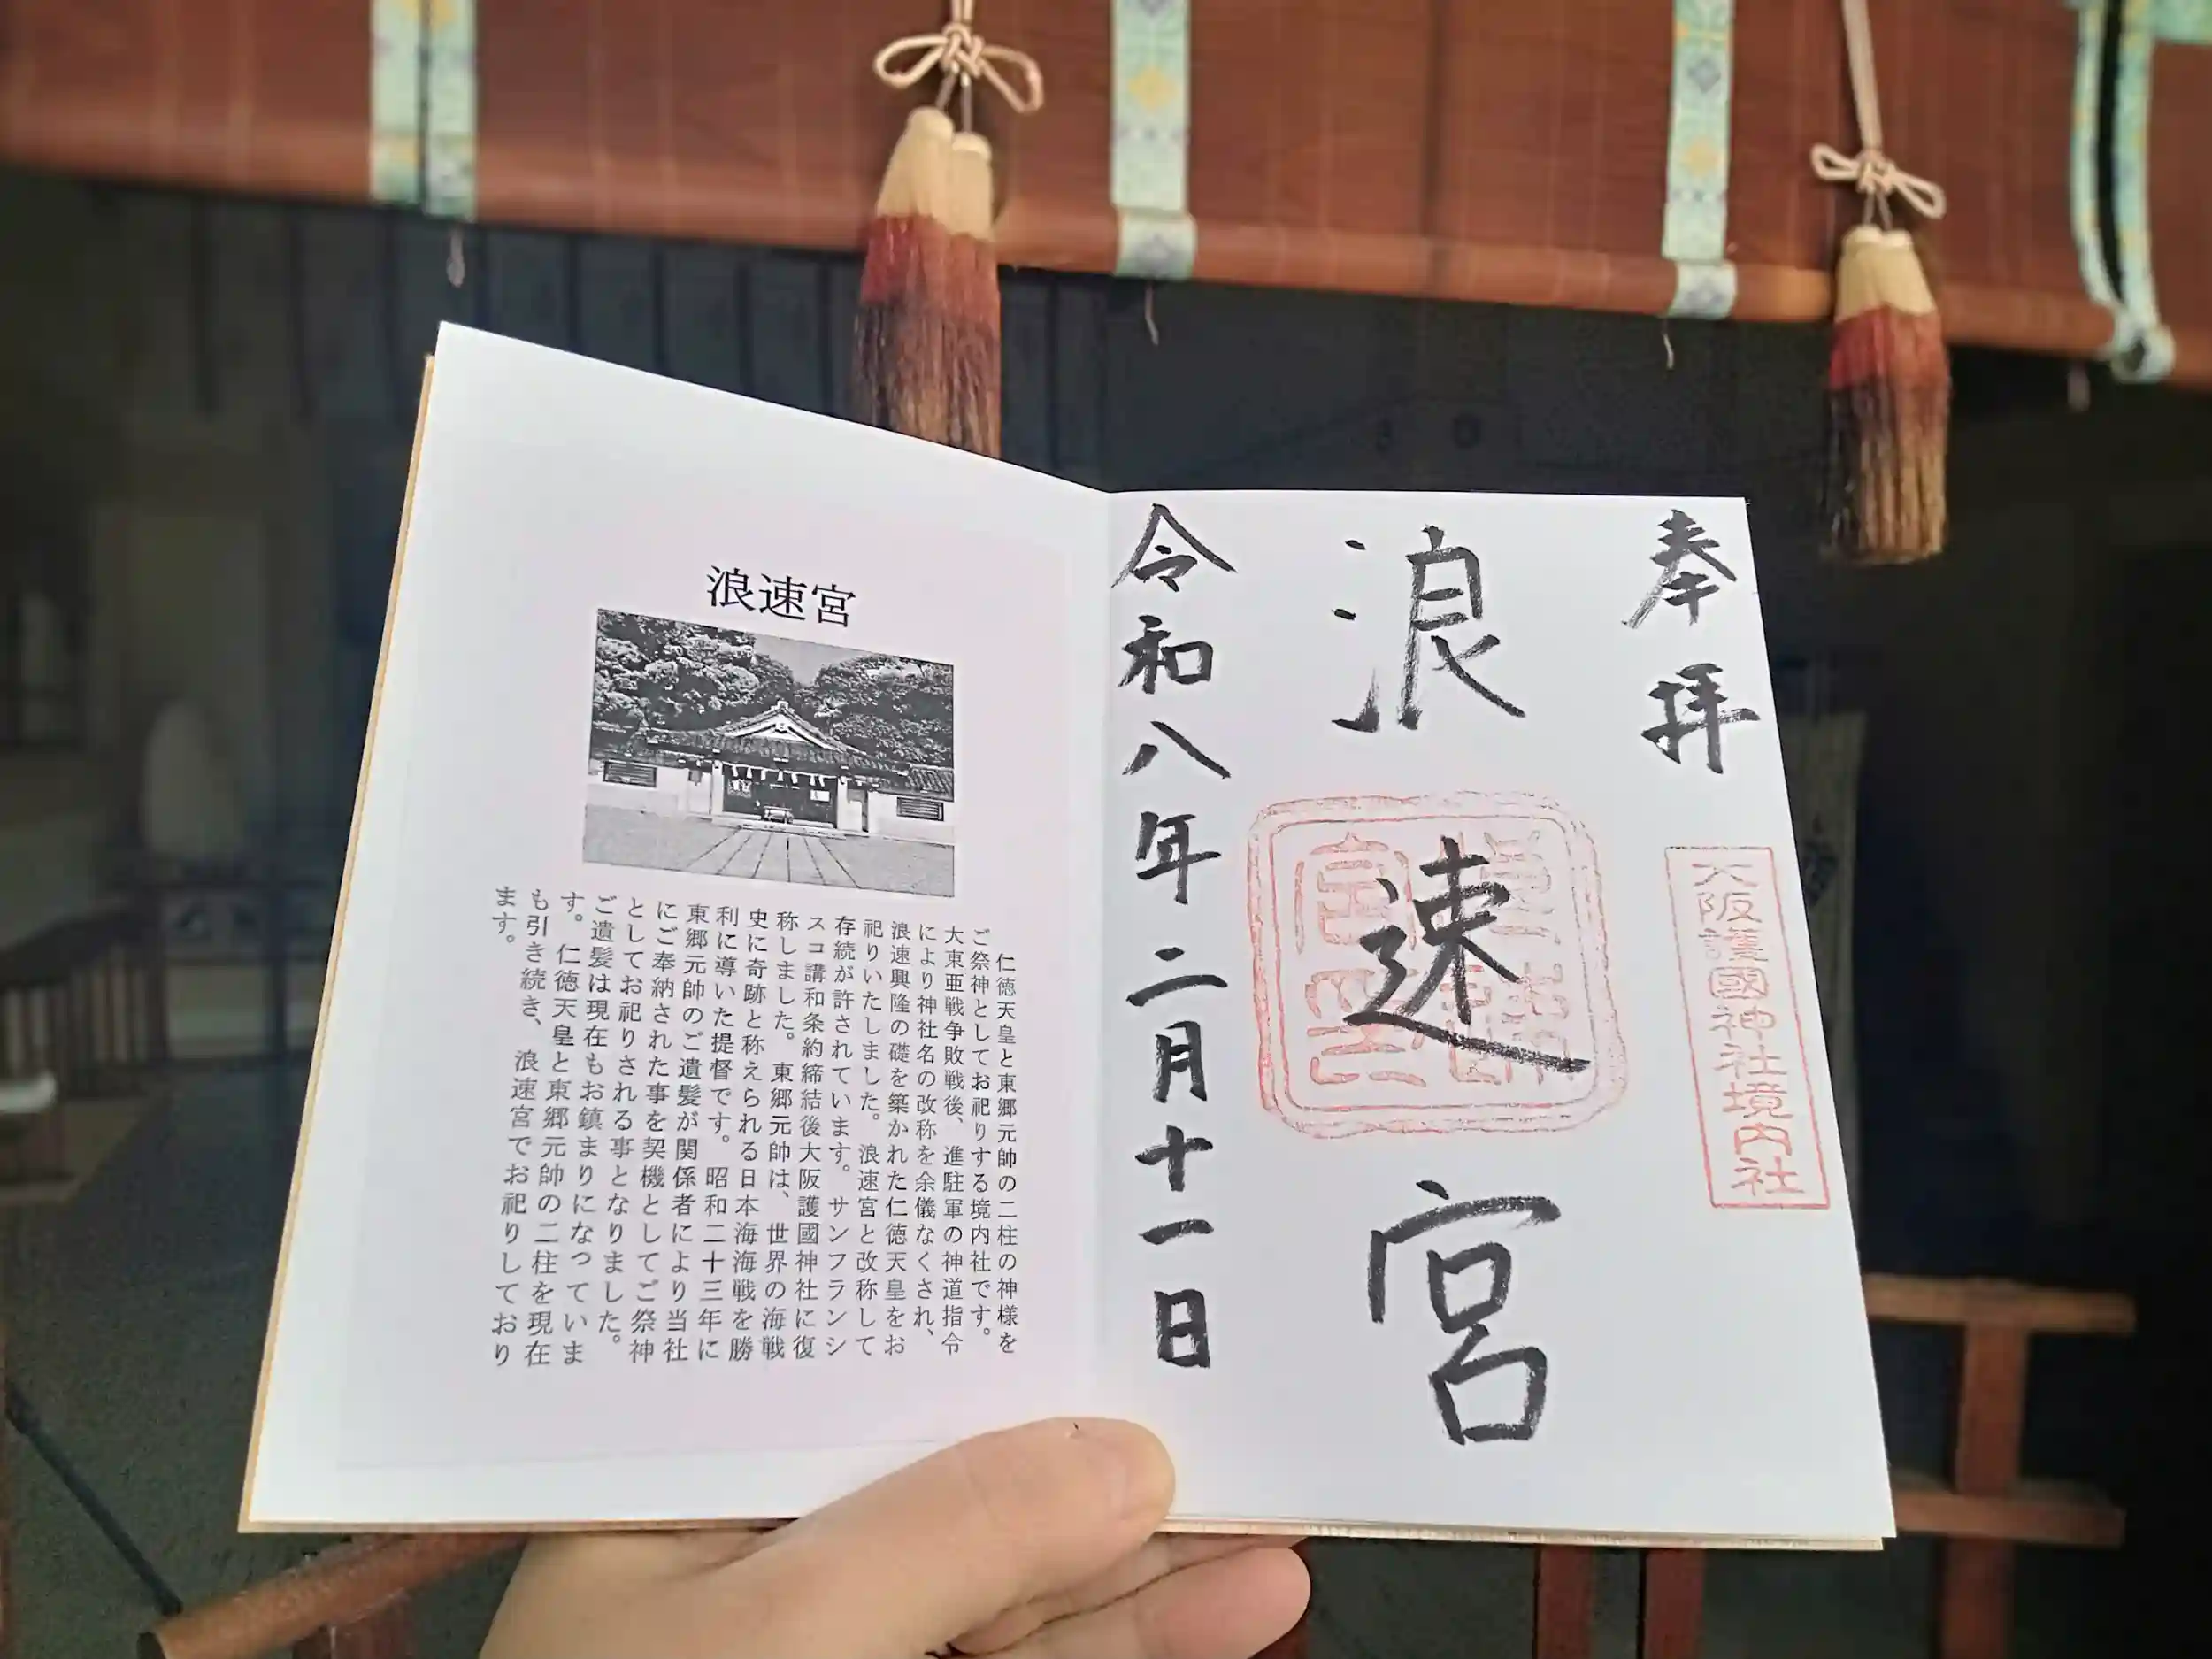 奉拝
大阪護國神社境内社
浪速宮
令和八年二月十一日
浪速宮
仁徳天皇と東郷元帥の二柱の神様を
ご祭神としてお祀りする境内社です。
大東亜戦争敗戦後、進駐軍の神道指令
により神社名の改称を余儀なくされ、
浪速興隆の礎を築かれた仁徳天皇をお
祀りいたしました。浪速宮と改称して
存続が許されています。サンフランシ
スコ講和条約締結後大阪護國神社に復
称しました。東郷元帥は、世界の海戦
史に奇跡と称えられる日本海海戦を勝
利に導いた提督です。昭和二十三年に
東郷元帥のご遺髪が関係者により当社
にご奉納された事を契機としてご祭神
としてお祀りされる事となりました。
ご遺髪は現在もお鎮まりになっていま
す。仁徳天皇と東郷元帥の二柱を現在
も引き続き、浪速宮でお祀りしており
ます。